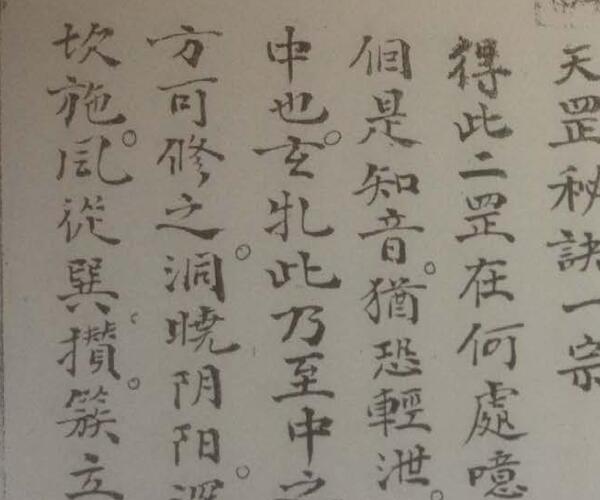 天罡秘訣一宗
得此二罡在何處噫
個是知音。猶恐輕泄。
中也。玄牝此乃至中之
方可修之。洞曉阴阳。
坎施。凬從巽攢。簇立